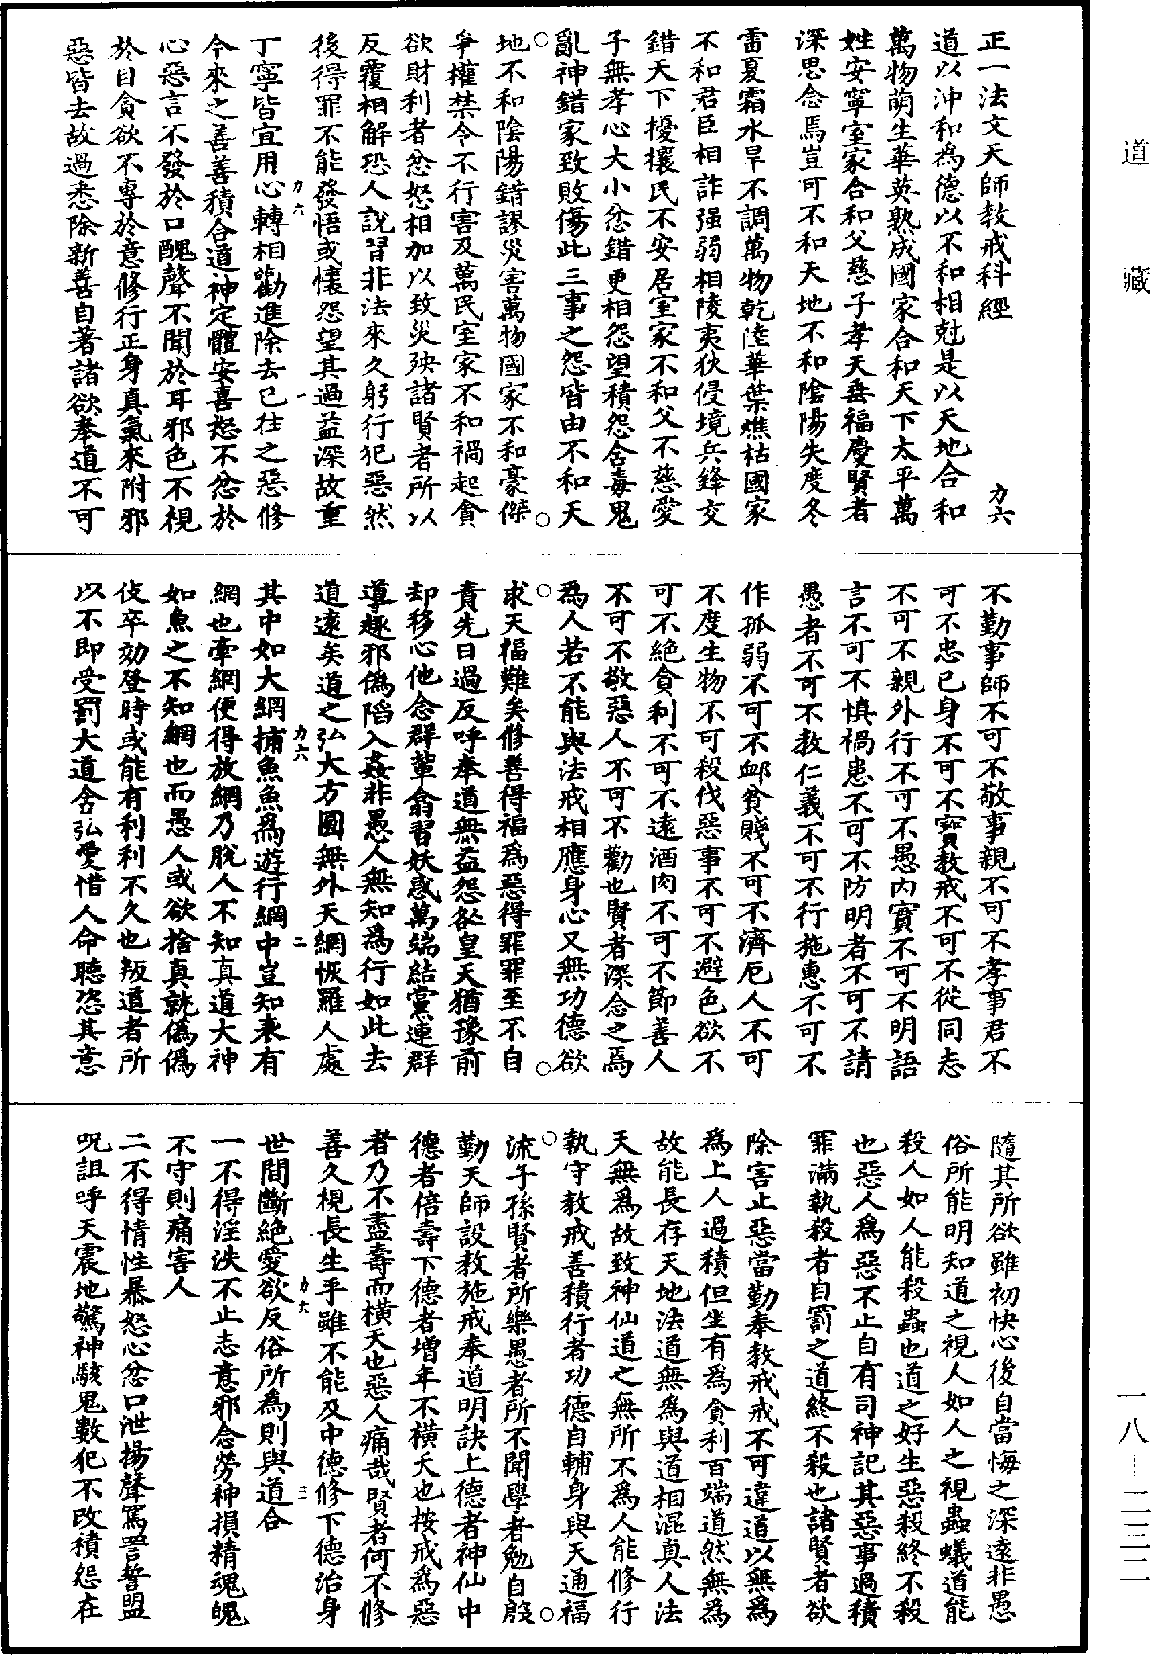 道藏
正一法文天師教戒科經
力六
道以沖和為德以不和相尅是以天地合和
萬物萌生華英熟成國家合和天下太平萬
姓安寧室家合和父慈子孝天垂福慶賢者
深思念焉豈可不和天地不和陰陽失度冬
雷夏霜水旱不調萬物乾陸華葉燋枯國家
不和君臣相詐强弱相陵夷狄侵境兵鋒交
錯天下擾攘民不安居室家不和父不慈愛
子無孝心大小忿錯更相怨望積怨含毒鬼
亂神錯家致敗傷此三事之怨皆由不和天
地不和陰陽錯謬災害萬物國家不和豪傑
爭權禁令不行害及萬民室家不和禍起貪
欲財利者忿怒相加以致災殃諸賢者所以
反覆相解恐人說習非法來久躬行犯惡然
後得罪不能發悟或懷怨望其過益深故重
力六
一
丁寧皆宜用心轉相勸進除去已往之惡修
今來之善善積合道神定體安喜怒不忿於
心惡言不發於口醜聲不聞於耳邪色不視
於目貪欲不專於意修行正身真氣來附邪
惡皆去故過悉除新善自著諸欲奉道不可
不勤事師不可不敬事親不可不孝事君不
可不忠己身不可不寳教戒不可不從同志
不可不親外行不可不愚內實不可不明語
言不可不慎禍患不可不防明者不可不請
愚者不可不教仁義不可不行施惠不可不
作孤弱不可不卹貧賤不可不濟厄人不可
不度生物不可殺伐惡事不可不避色欲不
可不絕貪利不可不遠酒肉不可不節善人
不可不敬惡人不可不勸也賢者深念之焉
為人若不能與法戒相應身心又無功德欲
求天福難矣修善得福為惡得罪罪至不自
責先日過反呼奉道無益怨咎皇天猶豫前
却移心他念群輩翕習妖惑萬端結黨連群
導趣邪偽陷入姦非愚人無知為行如此去
道遠矣道之弘大方圓無外天網恢羅人處
力六
二
其中如大網捕魚魚為遊行網中豈知表有
網也牽網便得放網乃脫人不知真道大神
如魚之不知網也而愚人或欲捨真就偽偽
伎卒効登時或能有利利不久也叛道者所
以不即受罰大道含弘愛惜人命聽恣其意
隨其所欲雖初快心後自當悔之深遠非愚
俗所能明知道之視人如人之視蟲蟻道能
殺人如人能殺蟲也道之好生惡殺終不殺
也惡人為惡不止自有司神記其惡事過積
罪滿執殺者自罰之道終不殺也諸賢者欲
除害止惡當勤奉教戒戒不可違道以無為
為上人過積但坐有為貪利百端道然無為
故能長存天地法道無為與道相混真人法
天無為故致神仙道之無所不為人能修行
執守教戒善積行者功德自輔身與天通福
流子孫賢者所樂愚者所不聞學者勉自殷
勤天師設教施戒奉道明訣上德者神仙中
德者倍壽下德者增年不橫夭也按戒為惡
者乃不盡壽而橫夭也惡人痛哉賢者何不修
善久視長生乎雖不能及中德修下德治身
力六
三
世間斷絕愛欲反俗所為則與道合
一不得淫泆不止志意邪念勞神損精魂魄
不守則痛害人
二不得情性暴怒心忿口泄揚聲罵詈誓盟
呪詛呼天震地驚神駭鬼數犯不改積怨在
一八—二三二